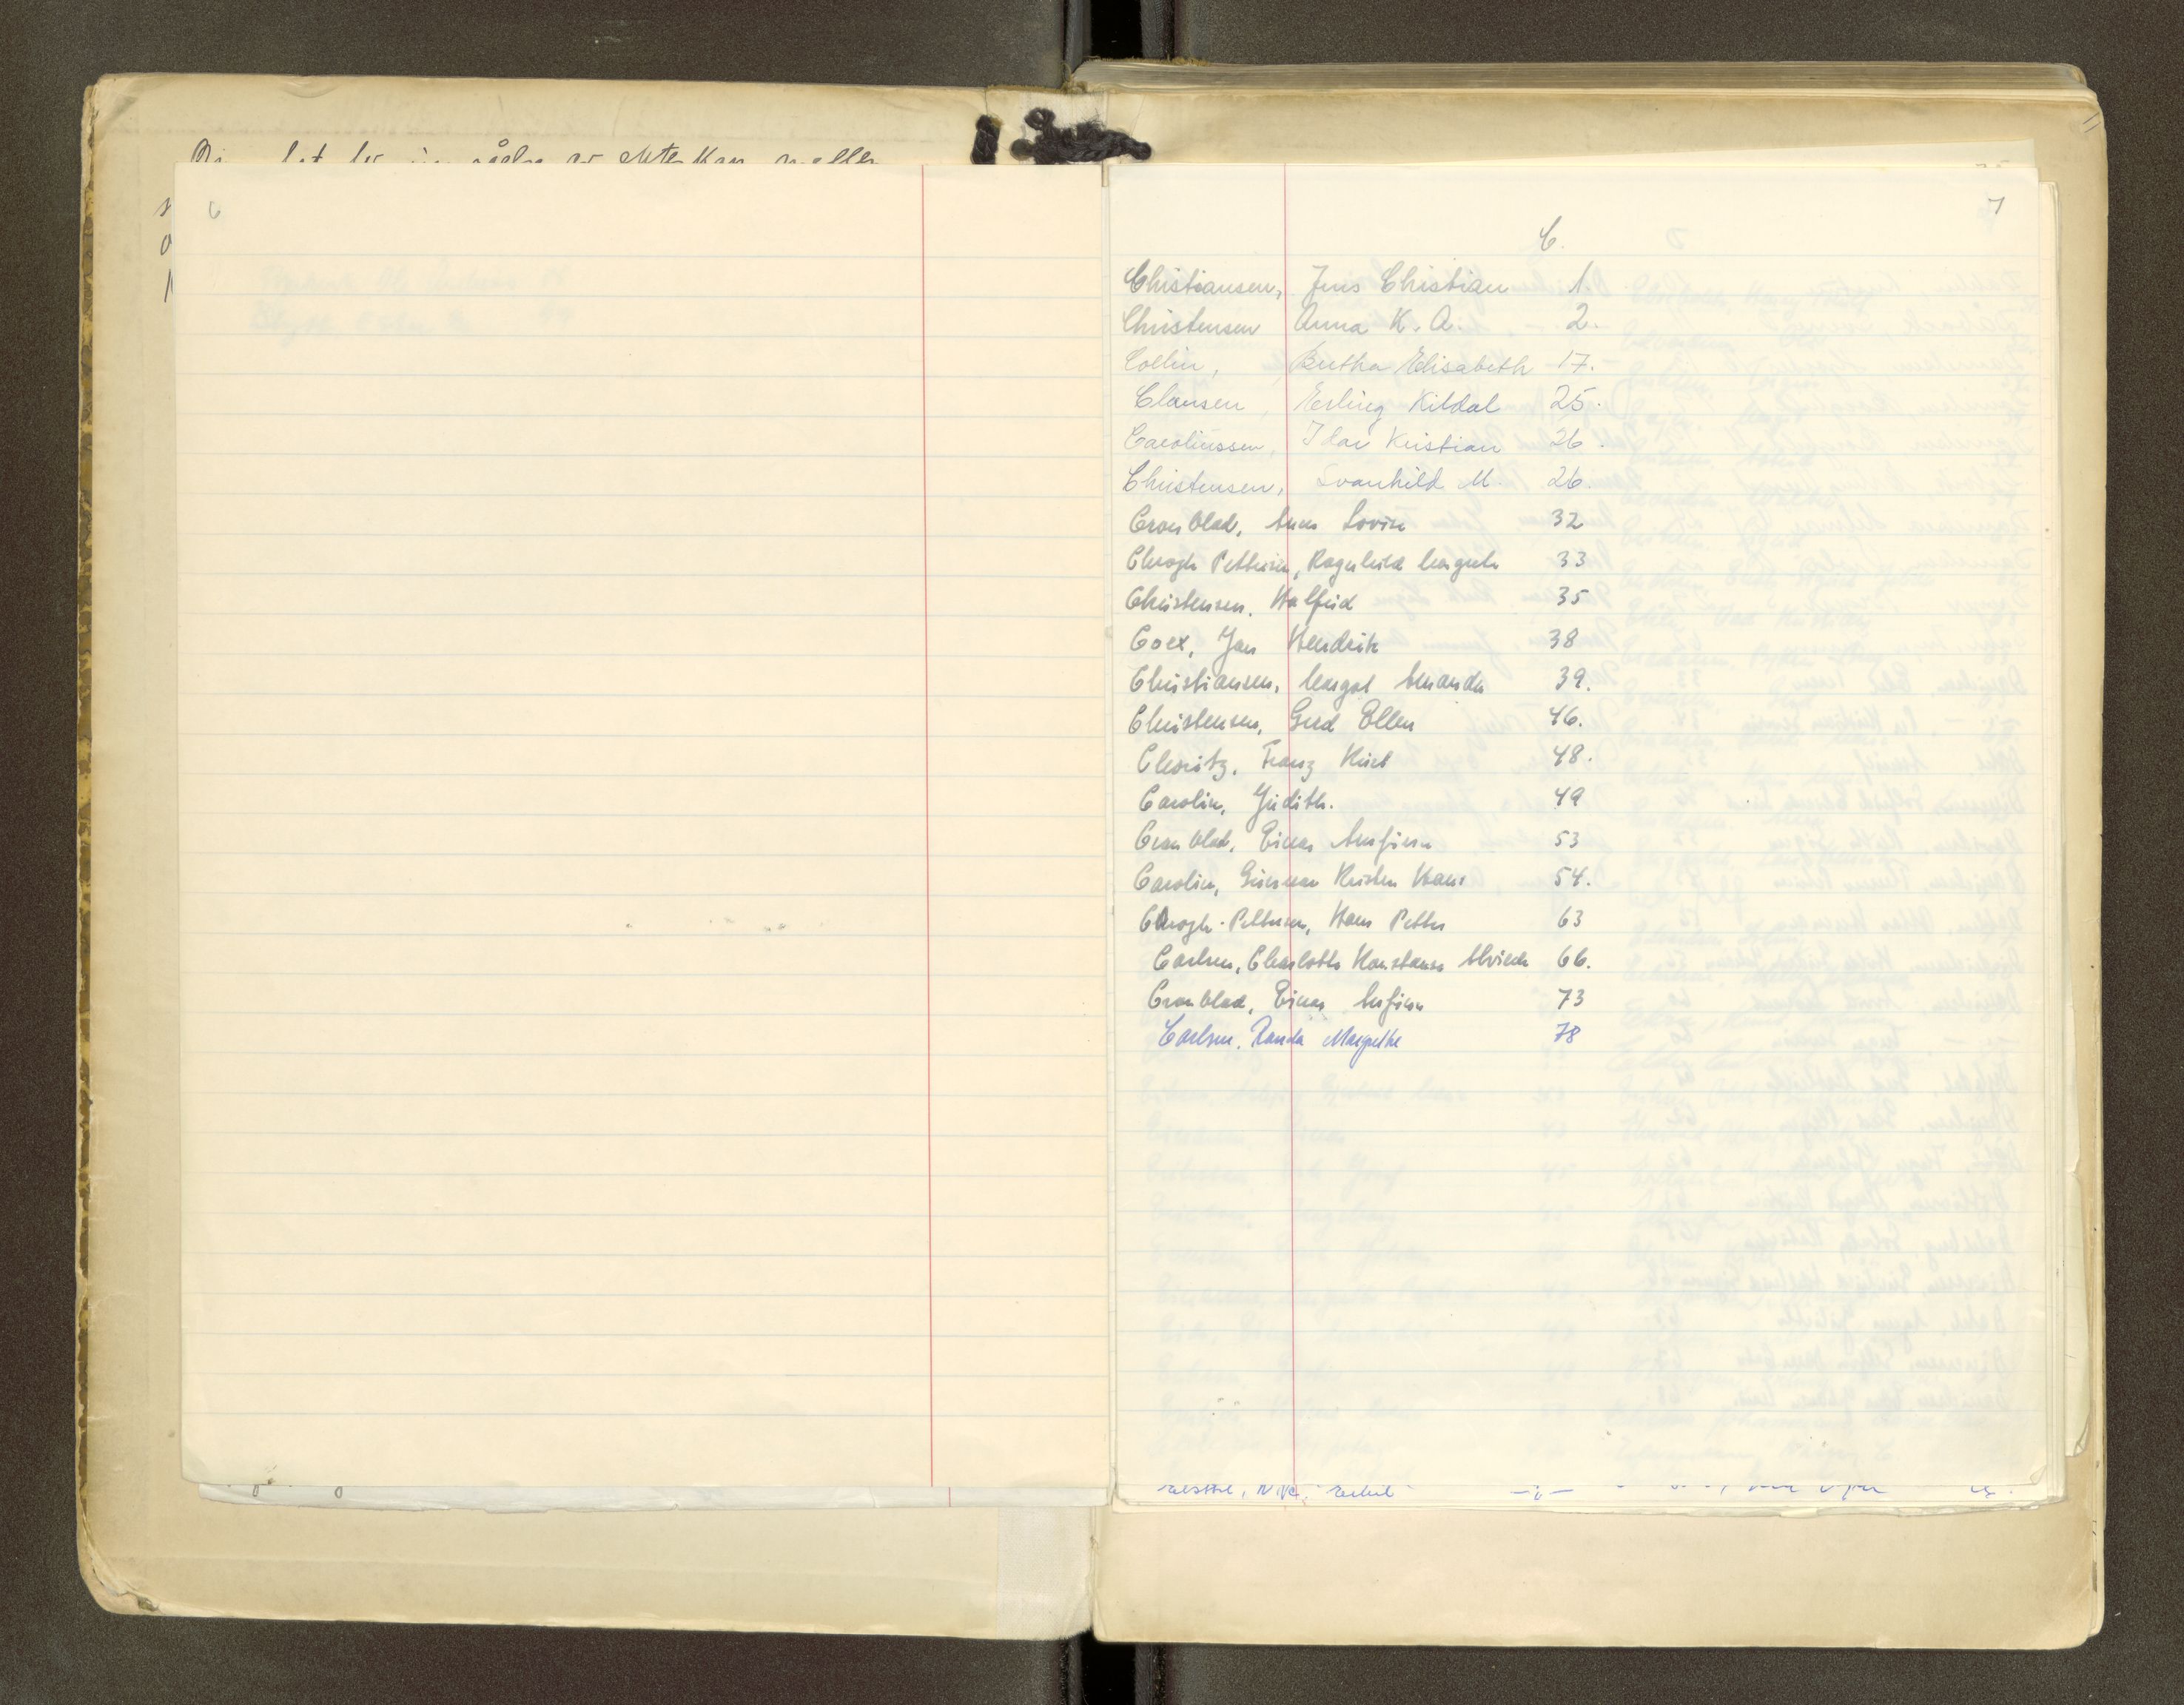 6
7
C.
Christiansen, Jens Christian 1.
Christensen Anna K. A. 2.
Collin, Bertha Elisabeth 17.
Clausen, Erling Kildal 25.
Caroliussen, Idar Kristian 26.
Christensen, Svanhild M. 26.
Cronblad, Anna Lovise 32
Chrogh Pettersen, Ragnhild Margrete 33
Christensen, Halfrid 35
Coex, Jan Hendrik 38
Christiansen, Margot Amanda 39.
Christensen, Gerd Ellen 46.
Choritz, Franz Kurt 48.
Carolin, Judith. 49
Cronblad, Einar Arnfinn 53
Carolin, Gunnar Kristen Hans 54.
Chrogh-Pettersen, Hans Petter 63
Carlsen, Charlotte Konstanse Alvilde 66.
Cronblad, Einar Arnfinn 73
Carlsen, Randa Margrethe 78